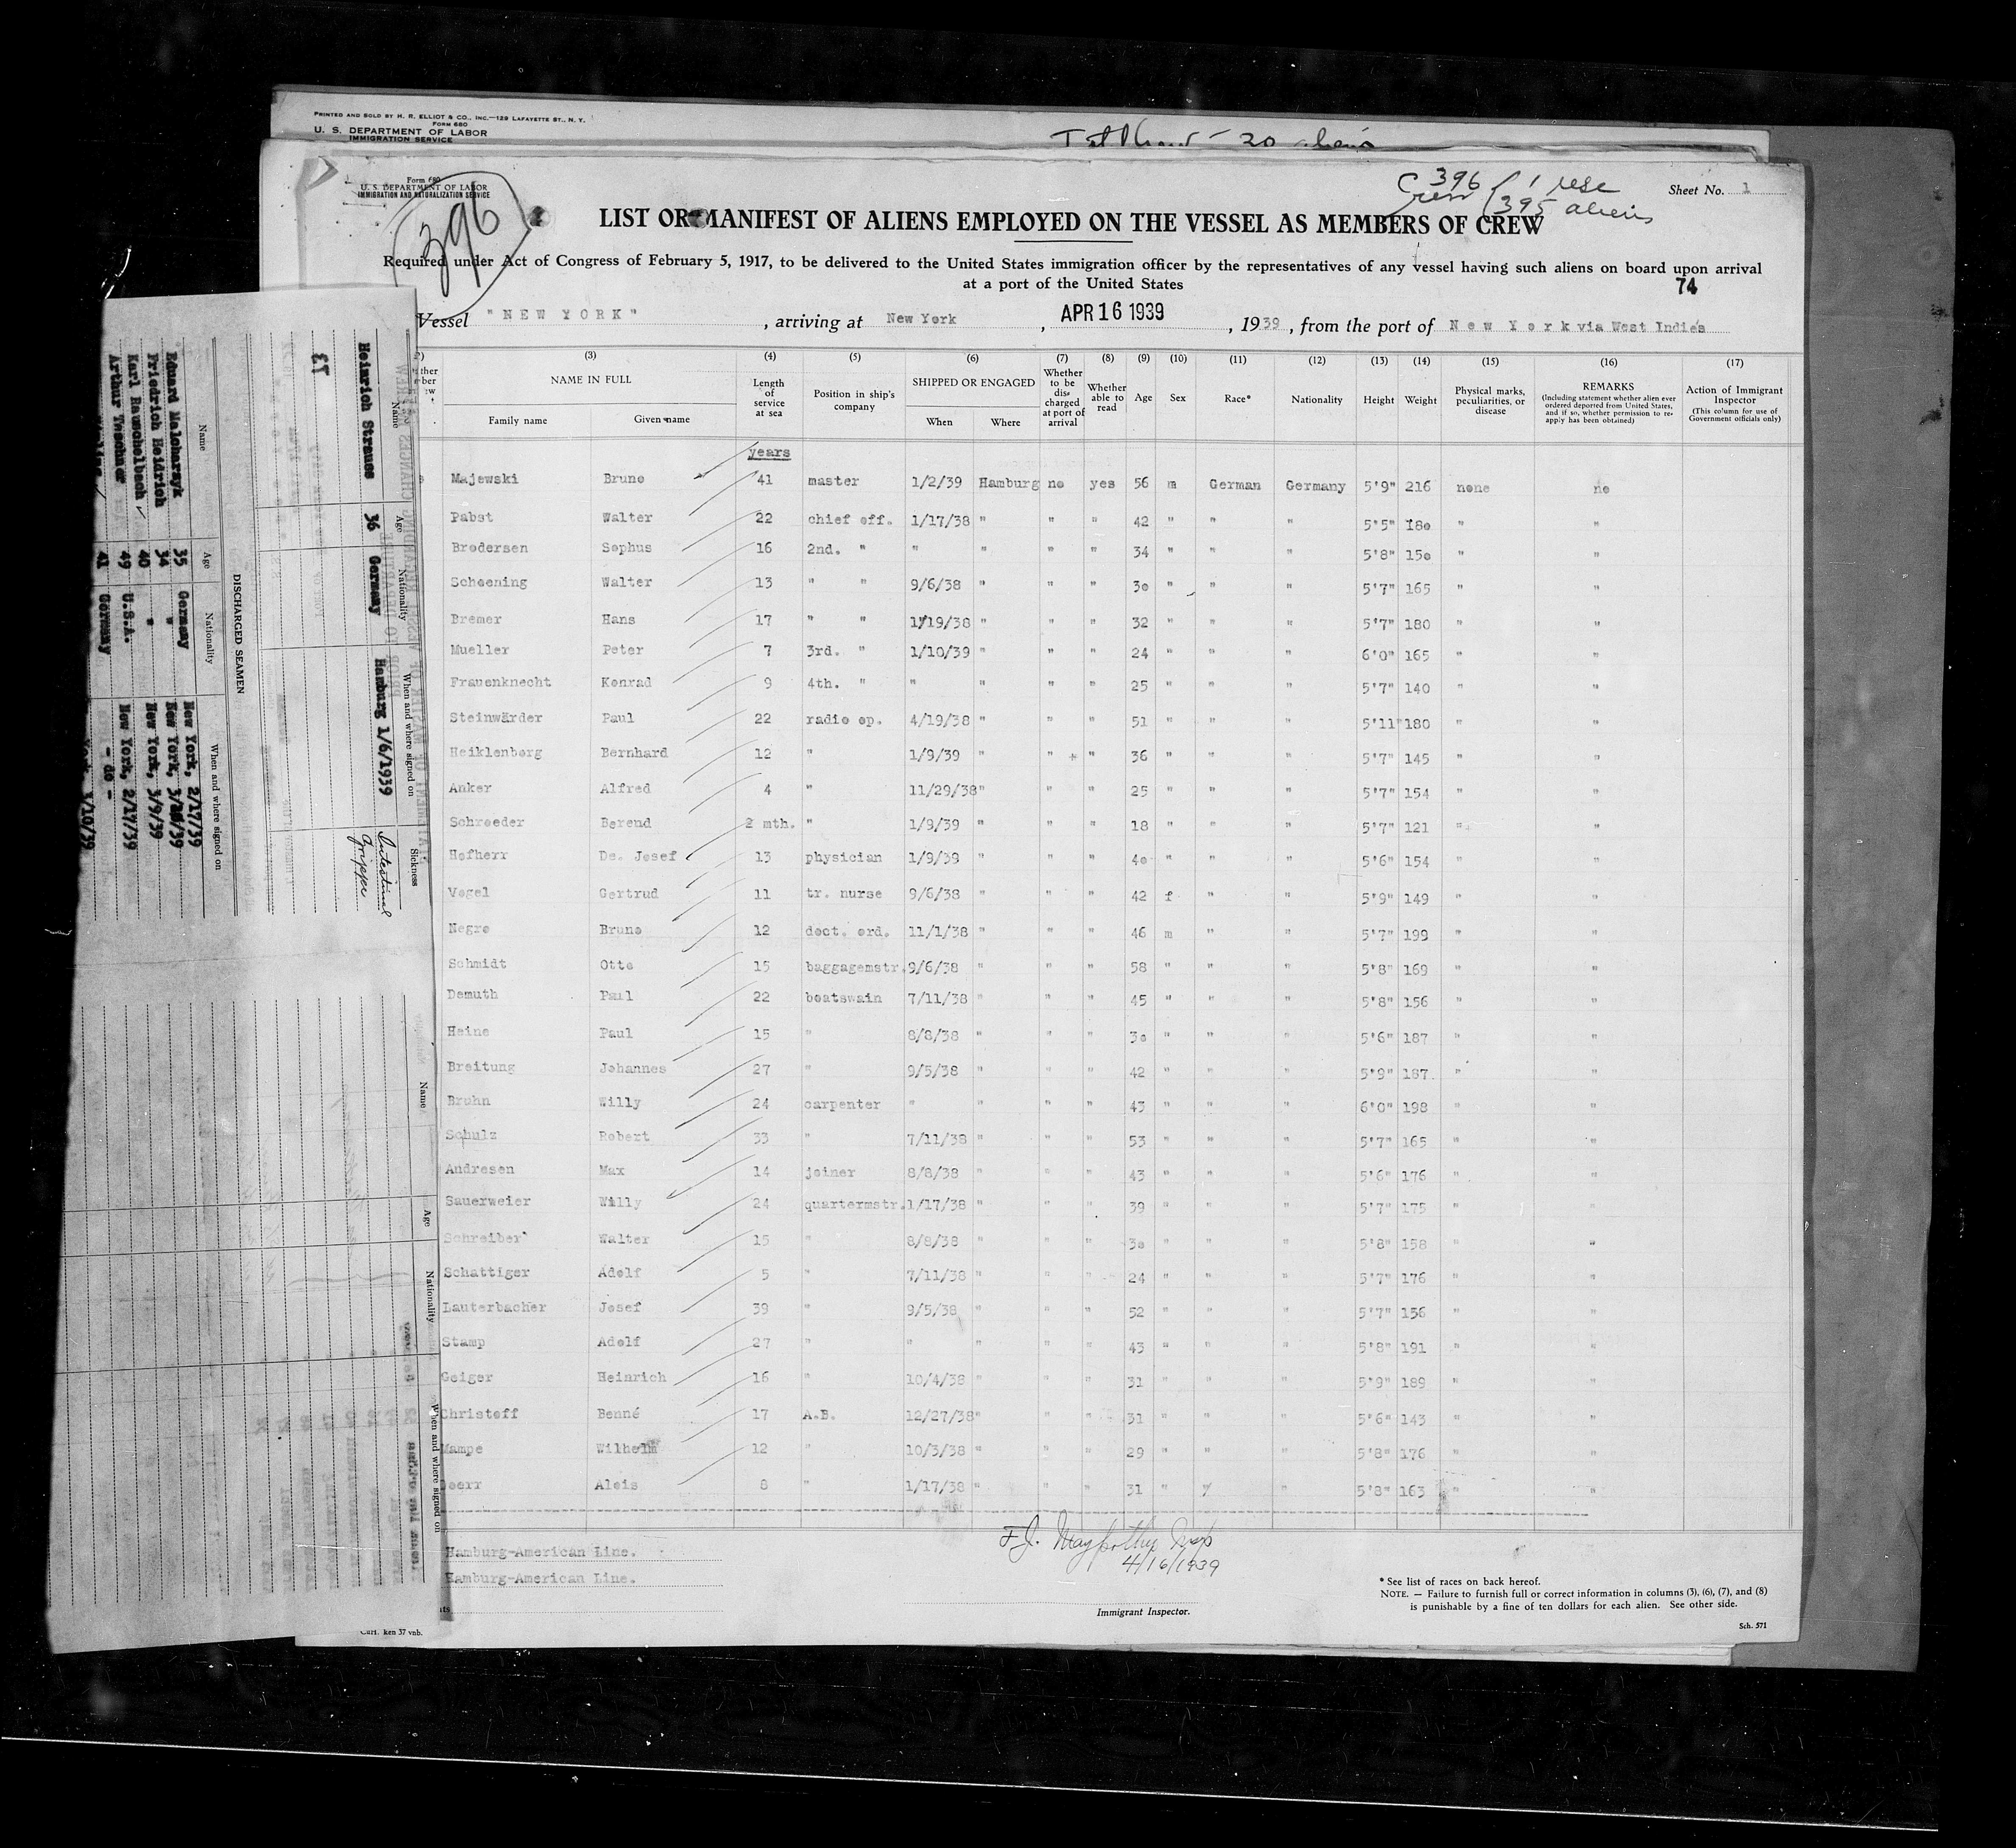 PRINTED AND SOLD BY H. R. ELLIOT & CO., INC.—129 LAFAYETTE ST., N. Y.
FORM 680
U. S. DEPARTMENT OF LABOR
IMMIGRATION SERVICE
20 aliens
Form 680
U. S. DEPARTMENT OF LABOR
IMMIGRATION AND NATURALIZATION SERVICE
396
Crew 396 1 usc
395 aliens
Sheet No. 1
LIST OR MANIFEST OF ALIENS EMPLOYED ON THE VESSEL AS MEMBERS OF CREW
Required under Act of Congress of February 5, 1917, to be delivered to the United States immigration officer by the representatives of any vessel having such aliens on board upon arrival
at a port of the United States
74
Vessel "NEW YORK", arriving at New York, APR 16 1939, 1939, from the port of New York via West Indies
(3) (4) (5) (6) (7) (8) (9) (10) (11) (12) (13) (14) (15) (16) (17)
NAME IN FULL Length of service at sea Position in ship's company SHIPPED OR ENGAGED Whether to be discharged at port of arrival Whether able to read Age Sex Race* Nationality Height Weight Physical marks, peculiarities, or disease REMARKS (Including statement whether alien ever ordered deported from United States, and if so, whether permission to reapply has been obtained) Action of Immigrant Inspector (This column for use of Government officials only)
Family name Given name When Where
years
Majewski Bruno 41 master 1/2/39 Hamburg no yes 56 m German Germany 5'9" 216 none no
Pabst Walter 22 chief off. 1/17/38 " " " 42 " " " 5'5" 180 " "
Brodersen Sophus 16 2nd. " " " " " 34 " " " 5'8" 150 " "
Schoening Walter 13 " " 9/6/38 " " " 30 " " " 5'7" 165 " "
Bremer Hans 17 " " 1/19/38 " " " 32 " " " 5'7" 180 " "
Mueller Peter 7 3rd. " 1/10/39 " " " 24 " " " 6'0" 165 " "
Frauenknecht Konrad 9 4th. " " " " " 25 " " " 5'7" 140 " "
Steinwärder Paul 22 radio op. 4/19/38 " " " 51 " " " 5'11" 180 " "
Heiklenborg Bernhard 12 " 1/9/39 " " " 36 " " " 5'7" 145 " "
Anker Alfred 4 " 11/29/38 " " " 25 " " " 5'7" 154 " "
Schroeder Berend 2 mth. " 1/9/39 " " " 18 " " " 5'7" 121 " "
Hofherr Dr. Josef 13 physician 1/9/39 " " " 40 " " " 5'6" 154 " "
Vogel Gertrud 11 tr. nurse 9/6/38 " " " 42 f " " 5'9" 149 " "
Negro Bruno 12 doct. ord. 11/1/38 " " " 46 m " " 5'7" 199 " "
Schmidt Otto 15 baggagemstr. 9/6/38 " " " 58 " " " 5'8" 169 " "
Demuth Paul 22 boatswain 7/11/38 " " " 45 " " " 5'8" 156 " "
Heine Paul 15 " 8/8/38 " " " 30 " " " 5'6" 187 " "
Breitung Johannes 27 " 9/5/38 " " " 42 " " " 5'9" 187 " "
Bruhn Willy 24 carpenter " " " " 43 " " " 6'0" 198 " "
Schulz Robert 33 " 7/11/38 " " " 53 " " " 5'7" 165 " "
Andresen Max 14 joiner 8/8/38 " " " 43 " " " 5'6" 176 " "
Sauerweier Willy 24 quartermstr. 1/17/38 " " " 39 " " " 5'7" 175 " "
Schreiber Walter 15 " 8/8/38 " " " 30 " " " 5'8" 158 " "
Schattiger Adolf 5 " 7/11/38 " " " 24 " " " 5'7" 176 " "
Lauterbacher Josef 39 " 9/5/38 " " " 52 " " " 5'7" 136 " "
Stamp Adolf 27 " " " " " 43 " " " 5'8" 191 " "
Geiger Heinrich 16 " 10/4/38 " " " 31 " " " 5'9" 189 " "
Christoff Benné 17 A.B. 12/27/38 " " " 31 " " " 5'6" 143 " "
Mampe Wilhelm 12 " 10/3/38 " " " 29 " " " 5'8" 176 " "
Alois 8 " 1/17/38 " " " 31 " " " 5'8" 163 " "
Hamburg-American Line.
Hamburg-American Line.
4/16/1939
Immigrant Inspector.
* See list of races on back hereof.
NOTE. — Failure to furnish full or correct information in columns (3), (6), (7), and (8)
is punishable by a fine of ten dollars for each alien. See other side.
Sch. 571
Name Age Nationality When and where signed on Sickness
Heinrich Strauss 36 Germany Hamburg 1/6/1939 Intestinal Grippe
DISCHARGED SEAMEN
Name Age Nationality When and where signed on
Eduard Malcharzyk 35 Germany New York, 2/17/39
Friedrich Heidrich 34 " New York,
Karl Rauschelbach 40 " New York, 3/9/39
Arthur Taschner 49 U.S.A. New York, 2/17/39
41 Germany - do -
3/10/39
Name Age Nationality When and where signed on